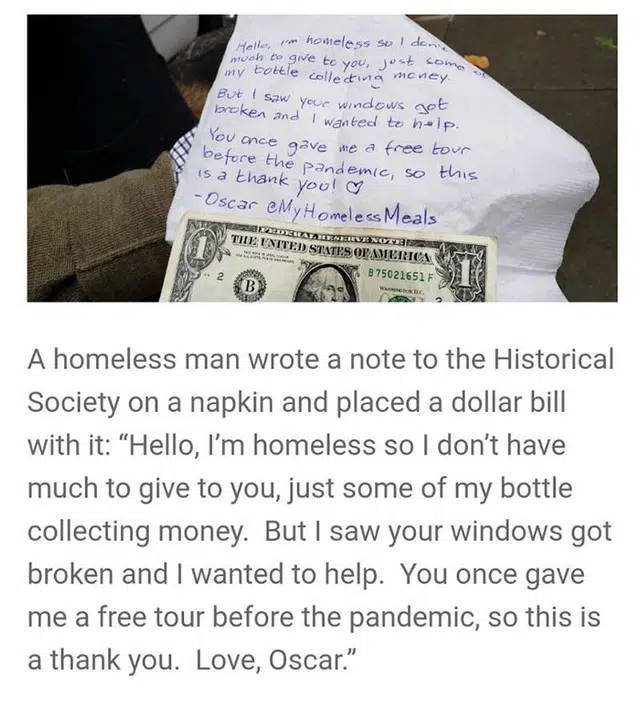 Hello, I'm homeless so I don't
much to give to you, just some of
my bottle collecting money.
But I saw your windows got
broken and I wanted to help.
You once gave me a free tour
before the pandemic, so this
is a thank you! ♡
-Oscar @MyHomelessMeals
FEDERAL RESERVE NOTE
THE UNITED STATES OF AMERICA
1
1
B 75021651 F
2
B
WASHINGTON, D.C.
2
A homeless man wrote a note to the Historical
Society on a napkin and placed a dollar bill
with it: “Hello, I’m homeless so I don’t have
much to give to you, just some of my bottle
collecting money.  But I saw your windows got
broken and I wanted to help.  You once gave
me a free tour before the pandemic, so this is
a thank you.  Love, Oscar.”